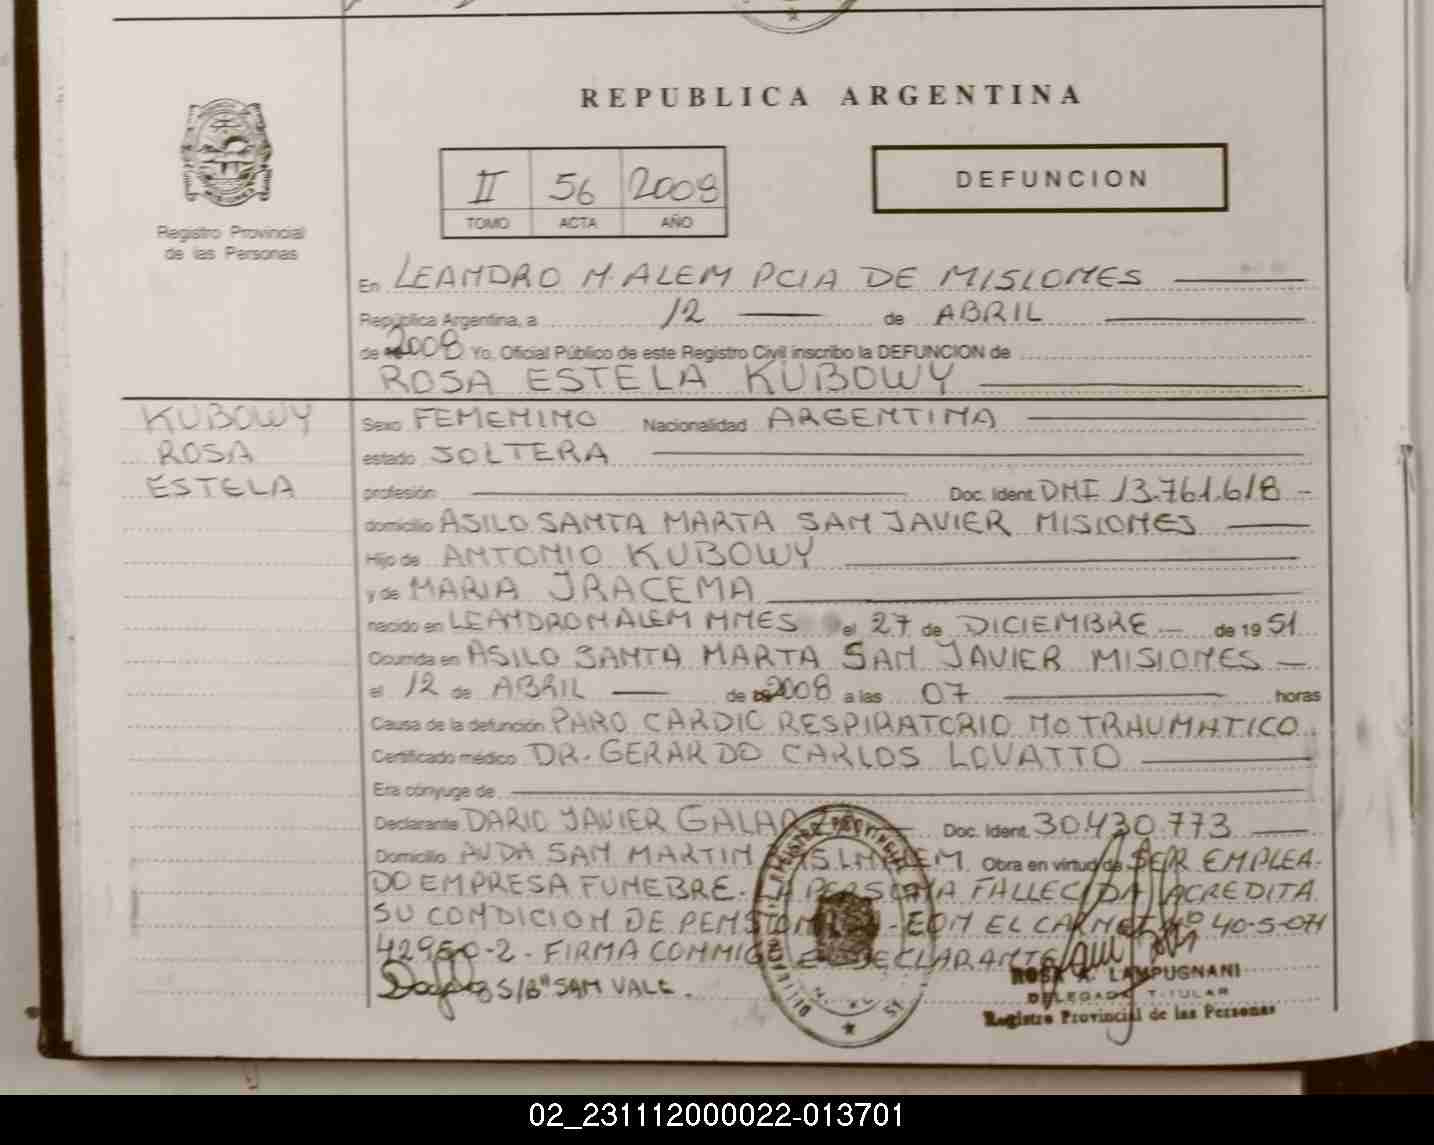 REPUBLICA ARGENTINA
II 56 2008
TOMO ACTA AÑO
DEFUNCION
Registro Provincial
de las Personas
En LEANDRO N. ALEM PCIA DE MISIONES
República Argentina, a 12 de ABRIL
de 2008 Yo, Oficial Público de este Registro Civil inscribo la DEFUNCION de
ROSA ESTELA KUBOWY
KUBOWY
ROSA
ESTELA
Sexo FEMENINO Nacionalidad ARGENTINA
estado SOLTERA
profesión Doc. Ident. DNI 13.761.618
domicilio ASILO SANTA MARTA SAN JAVIER MISIONES
Hijo de ANTONIO KUBOWY
y de MARIA IRACEMA
nacido en LEANDRO N ALEM MNES el 27 de DICIEMBRE de 1951
Ocurrida en ASILO SANTA MARTA SAN JAVIER MISIONES
el 12 de ABRIL de 2008 a las 07 horas
Causa de la defunción PARO CARDIO RESPIRATORIO NO TRAUMATICO
Certificado médico DR. GERARDO CARLOS LOVATTO
Era cónyuge de
Declarante DARIO JAVIER Doc. Ident. 30.430.773
Domicilio AVDA SAN MARTIN Obra en virtud de SER EMPLEA-
DO EMPRESA FUNEBRE. LA PERSONA FALLECIDA ACREDITA
SU CONDICION DE CON EL CARNET Nº 40-5-071
42950-2 - FIRMA CONMIGO EL DECLARANTE
S/Bº SAN VALE.
ROSA A. LAMPUGNANI
DELEGADA TITULAR
Registro Provincial de las Personas
02_231112000022-013701